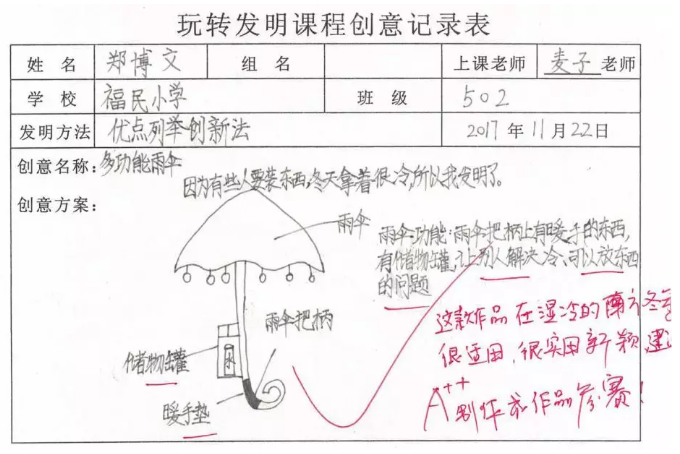 玩转发明课程创意记录表
姓 名 郑博文 组 名 上课老师 麦子老师
学 校 福民小学 班 级 502
发明方法 优点列举创新法 2017年11月22日
创意名称:多功能雨伞
因为有些人要装东西,冬天拿着很冷,所以我发明了。
创意方案:
雨伞
雨伞功能:雨伞把柄上有暖手的东西,
有储物罐,让别人解决冷、可以放东西
的问题
雨伞把柄
储物罐
暖手垫
这款作品在湿冷的南方冬季
很适用,很实用新颖
A++
制作成作品参赛!